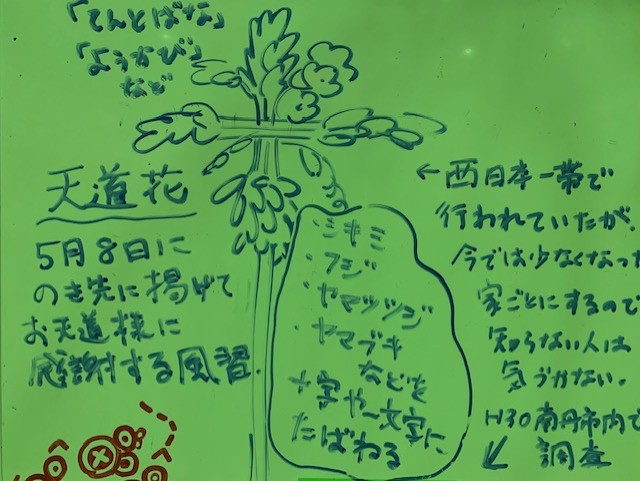 「てんとばな」
「ようかび」
など
天道花
5月8日に
のき先に揚げて
お天道様に
感謝する風習.
・シキミ
・フジ
・ヤマツツジ
・ヤマブキ
などを
十字や一文字に
たばねる
←西日本一帯で
行われていたが、
今では少なくなった
家ごとにするので
知らない人は
気づかない。
H30南丹市内で
調査